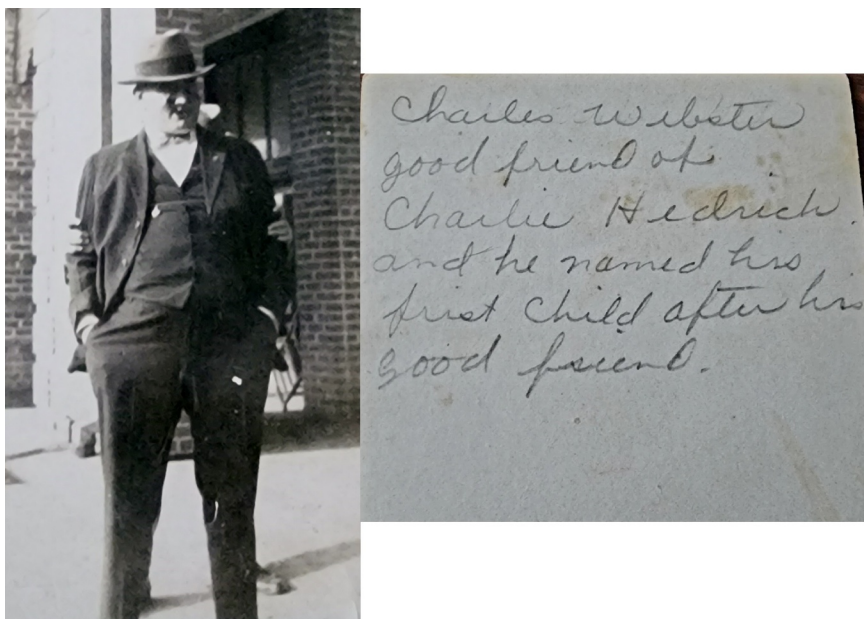 Charles Webster
good friend of
Charlie Hedrich.
and he named his
frist child after his
good friend.